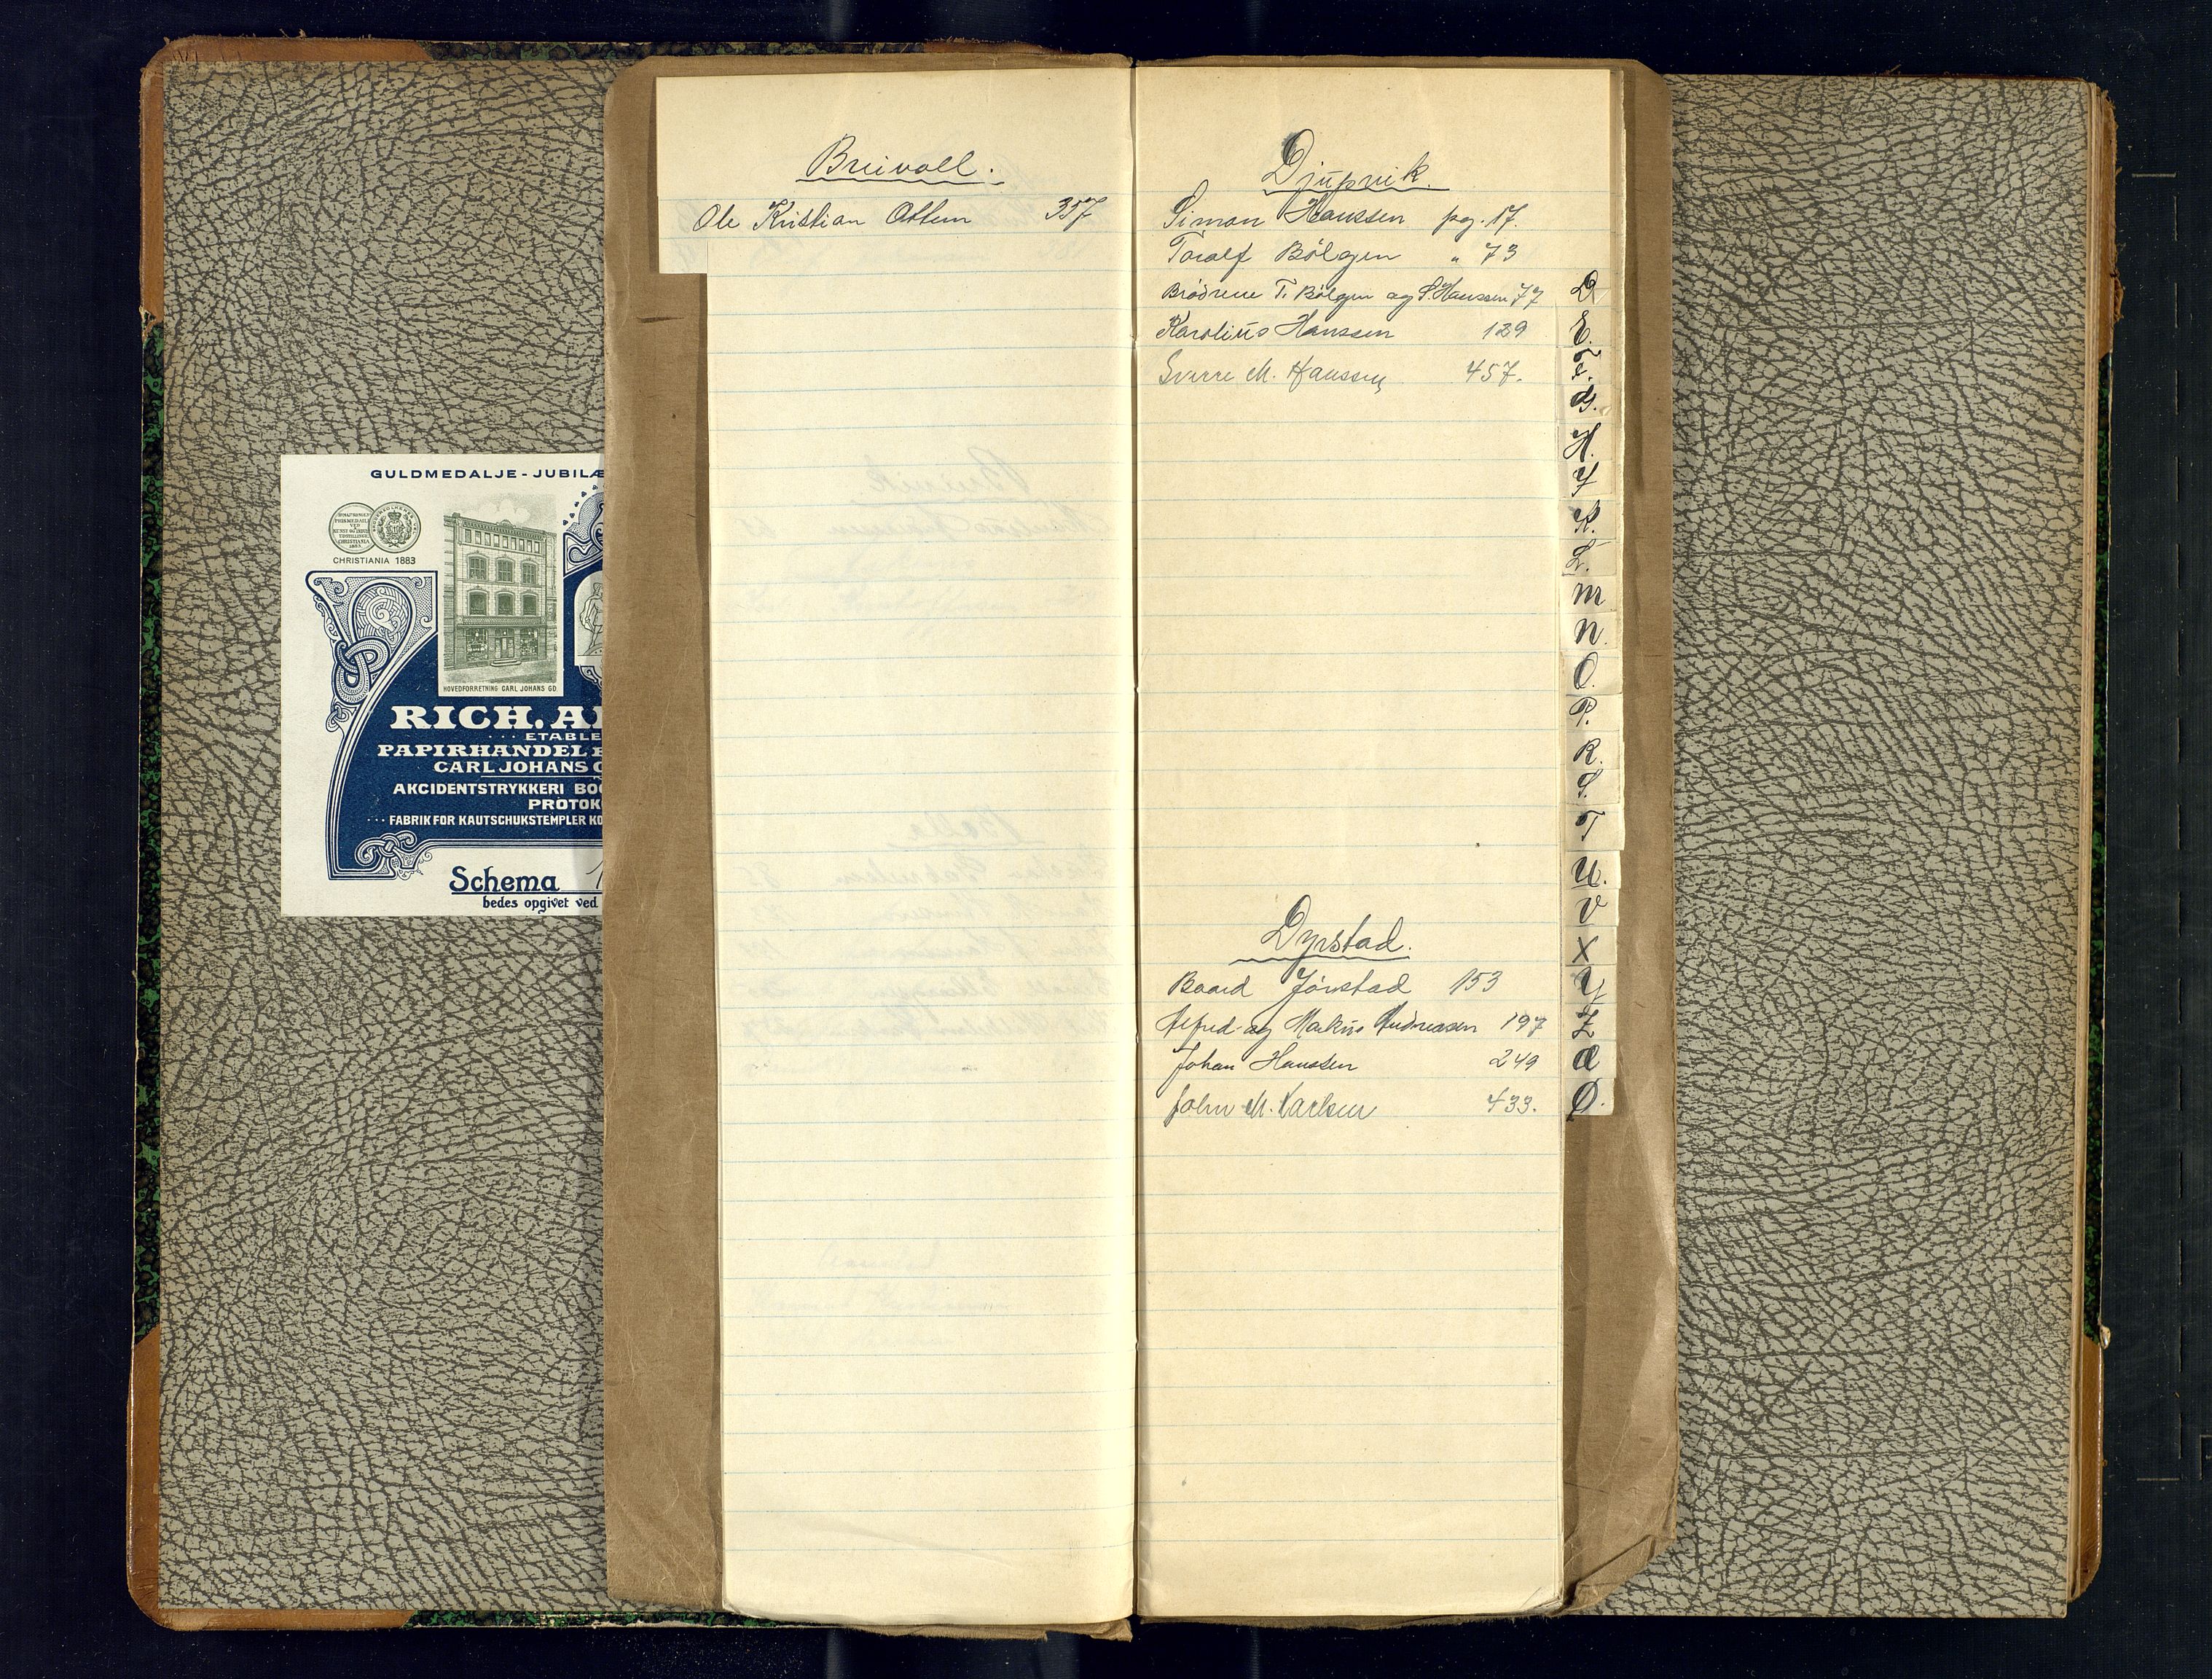 GULDMEDALJE-JUBILÆ
CHRISTIANIA 1883
HOVEDFORRETNING CARL JOHANS GD
RICH. A
ETABLE
PAPIRHANDEL
CARL JOHANS G
AKCIDENTSTRYKKERI BO
PROTOK
FABRIK FOR KAUTSCHUKSTEMPLER KO
Schema
bedes opgivet ved
Breivoll.
Ole Kristian Ottem 357
Djupvik.
Simon Hanssen pg. 17.
Toralf Bölgen " 73
Brödrene T. Bölgen og S. Hanssen 77
Karolius Hanssen 129
Sverre M. Hanssen 457.
Dyrstad.
Baard Jörstad 153
Alfred og Markus Andreassen 197
Johan Hanssen 249
John M. Karlsen 433.
D
E.
F.
G.
H.
J
K.
L.
M
N.
O.
P.
R.
S.
T
U.
V
X
Y
Z
Æ
Ø.